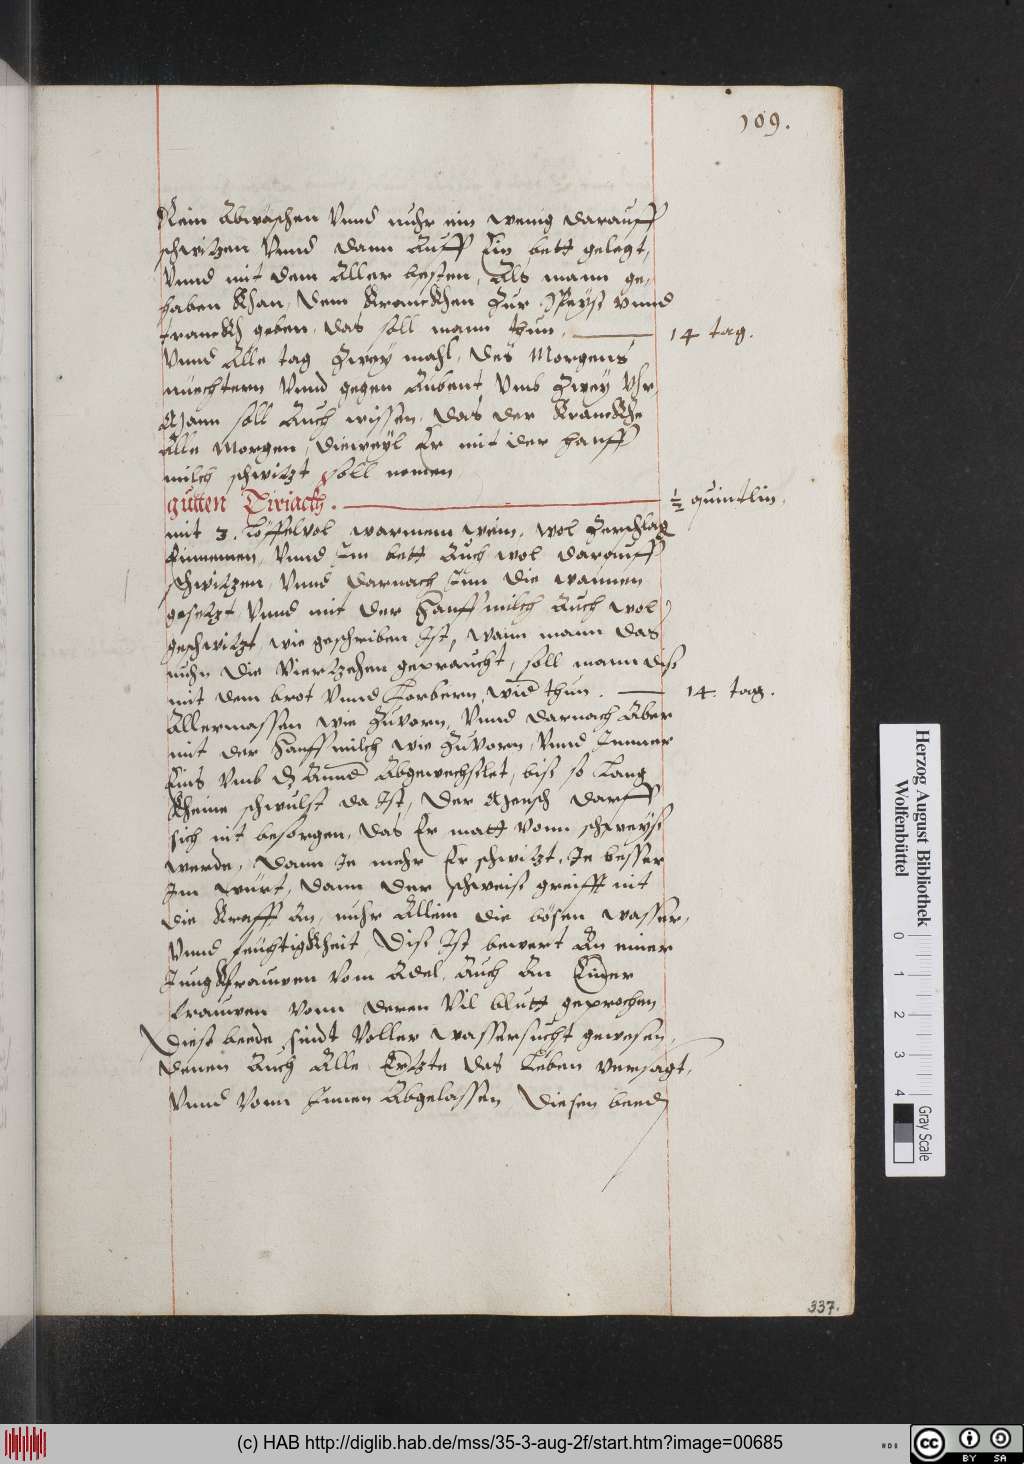 109.
Rein Abwäschen Vnnd nuhr ein wenig darauff
schwitzen Vnnd dann Auff Ein bett gelegt,
Vnnd mit dem Aller besten, Als mann ge-
haben Khan, dem Kranckhen Zur Speyß vnnd
tranckh geben, das soll mann thun. 14 tag.
Vnnd Alle tag Zwey mahl, Des Morgens
nuechtern Vnnd gegen Aubent Vmb Zwey Vhr,
Mann soll Auch wissen, das der Kranckhe
Alle Morgen, dieweyl Er mit der hanff
milch schwitzt soll nemen
gutten Tiriackh. ½ quintlin.
mit 3. Löffelvol warmem wein, wol Zerschlag
Einnemen, Vnnd Im bett Auch wol darauff
schwitzen, Vnnd darnach Inn die wannen
gesetzt Vnnd mit der Hanff milch Auch wol
geschwitzt, wie geschriben Ist, wann mann das
nuhn die Viertzehen gepraucht, soll mann diß
mit dem brot Vnnd Lorbern, wid thun. 14. tag.
Allermassen wie Zuvorn, Vnnd darnach Aber
mit der Hanff milch wie Zuvorn, Vnnd Immer
Eins Vmb dz Annd Abgewechslet, biß so Lang
Kheine schwulst da Ist, Der Mensch darff
sich nit besorgen, das Er matt vonn schweyß
werde, dann Je mehr Er schwitzt, Je besser
Im würt, dann der schweiß greifft nit
die Krafft An, nuhr Allein die bösen wasser,
Vnnd feuchtigkheit, Diß Ist bewert An einer
Jungkfrauwen Vom Adel, Auch An Einer
frauwen vonn deren Vil blutt geprochen
Dieß beede sindt Voller wassersucht gewesen,
denen Auch Alle Ertzte das Leben versagt,
Vnnd Vonn Innen Abgelassen Diesen beed
337.
Herzog August Bibliothek
Wolfenbüttel
0 1 2 3 4
Gray Scale
(c) HAB http://diglib.hab.de/mss/35-3-aug-2f/start.htm?image=00685
cc BY SA